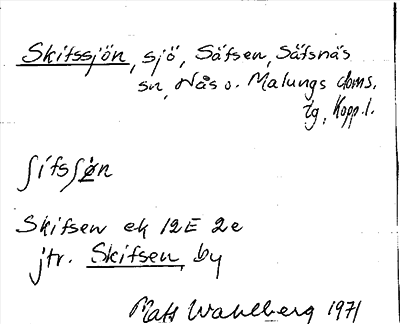 Skifssjön, sjö, Säfsen, Säfsnäs
sn, Nås o. Malungs doms.
tg, Kopp.l.
ʃifsʃøn
Skifsen ek 12E 2e
jtr. Skifsen, by
Mats Wahlberg 1971